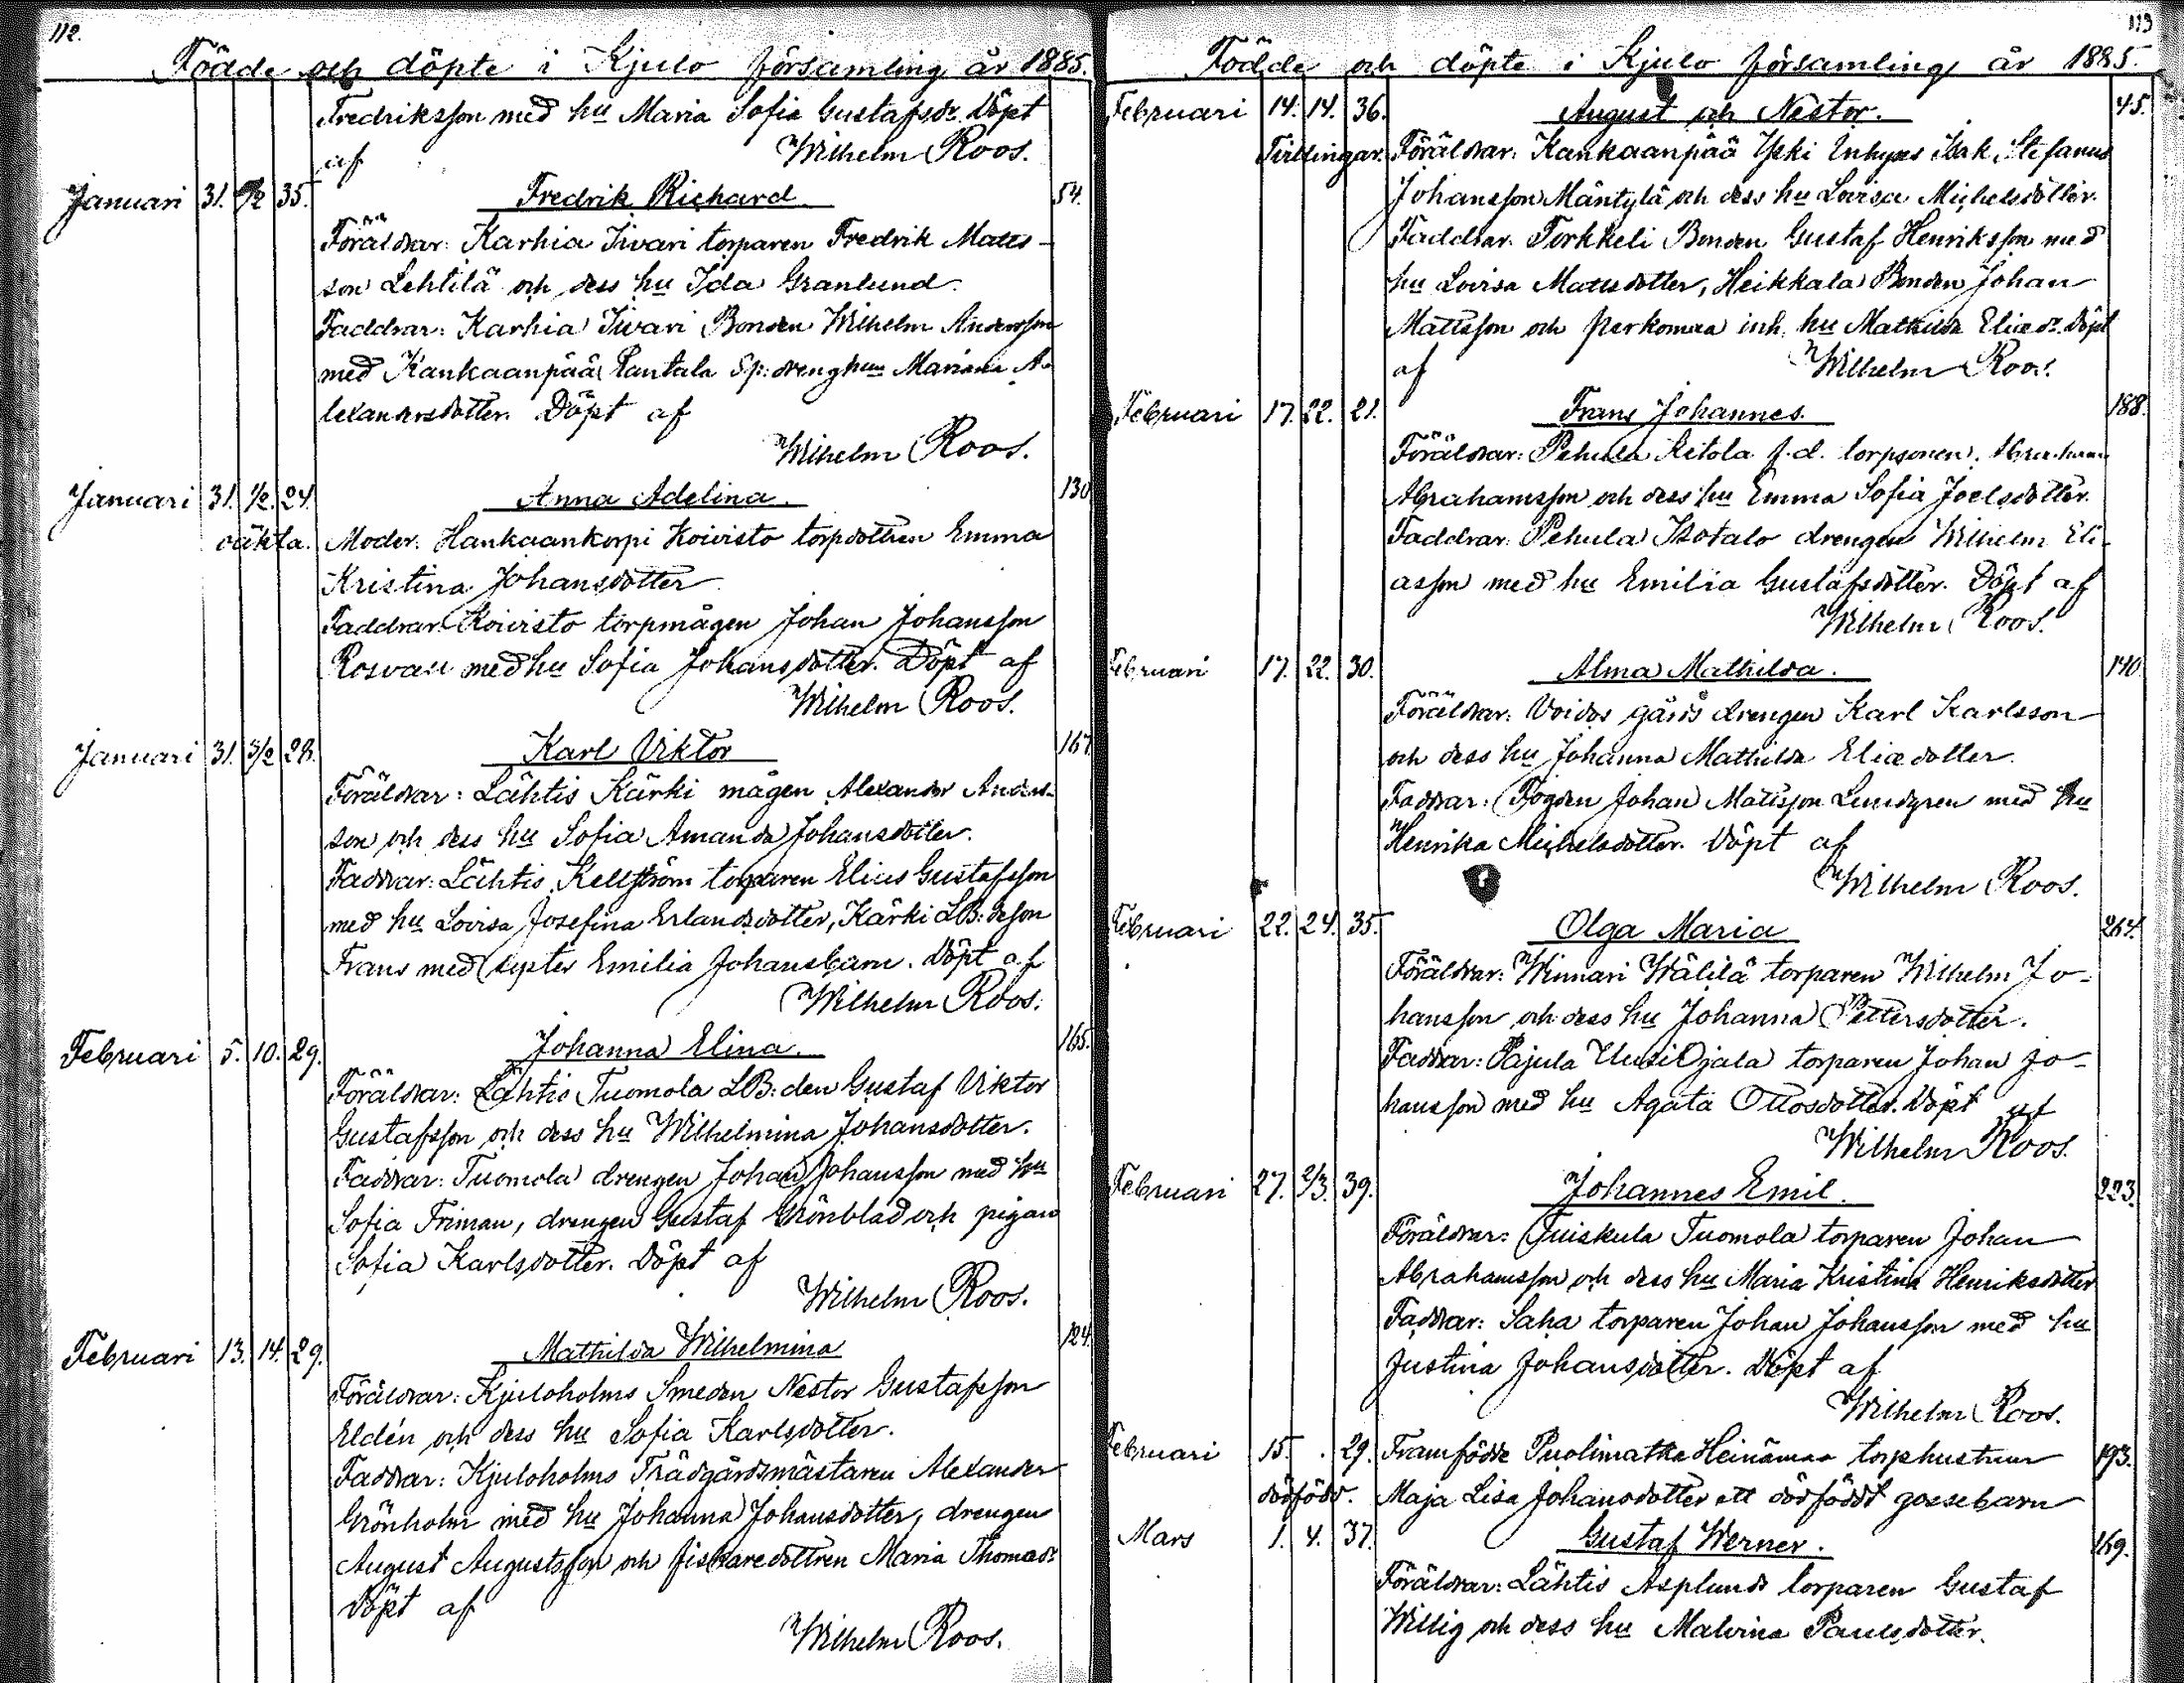 112.
Födde och döpte i Kjulo församling år 1885.
Fredriksson med hu Maria Sofia Gustafsdr. Döpt
af Wilhelm Roos.
Januari 31. 1/2 35. Fredrik Richard 54.
Föräldrar: Karhia Iivari torparen Fredrik Matts-
son Lehtilä och dess hu Ida Granlund.
Faddrar: Karhia Iivari Bonden Wilhelm Andersson
med Kankaanpää Rantala Sp: drenghu Mariana A-
lexandersdotter. Döpt af
Wilhelm Roos.
Januari 31. 1/2. 24. Anna Adelina. 130
oäkta. Moder: Hankaankorpi Koivisto torpdottren Emma
Kristina Johansdotter
Faddrar: Koivisto torpmågen Johan Johansson
Rosvall med hu Sofia Johansdotter. Döpt af
Wilhelm Roos.
Januari 31. 3/2 28. Karl Viktor 167
Föräldrar: Lähtis Kärki mågen Alexander Anders-
son och dess hu Sofia Amanda Johansdotter.
Faddrar: Lähtis Kellström torparen Elias Gustafsson
med hu Lovisa Josefina Erlandsdotter, Kärki LB: deson
Frans med syster Emilia Johansbarn. Döpt af
Wilhelm Roos.
Februari 5. 10. 29. Johanna Elina. 165.
Föräldrar: Lähtis Tuomola LB: den Gustaf Viktor
Gustafsson och dess hu Wilhelmina Johansdotter.
Faddrar: Tuomola drengen Johan Johansson med hu
Sofia Friman, drengen Gustaf Grönblad och pigan
Sofia Karlsdotter. Döpt af
Wilhelm Roos.
Februari 13. 14. 29. Mathilda Wilhelmina 124.
Föräldrar: Kjuloholms Smeden Nestor Gustafsson
Eldén och dess hu Sofia Karlsdotter.
Faddrar: Kjuloholms Trädgårdsmästaren Alexander
Grönholm med hu Johanna Johansdotter, drengen
August Augustsson och fiskaredottren Maria Thomasdr
Döpt af
Wilhelm Roos.
113
Födde och döpte i Kjulo församling år 1885.
Februari 14. 14. 36. August och Nestor. 45.
Tvillingar. Föräldrar: Kankaanpää Yski Inhyses Isak Stefanus
Johansson Mäntylä och dess hu Lovisa Michelsdotter.
Faddrar: Torkkeli Bonden Gustaf Henriksson med
hu Lovisa Mattsdotter, Heikkala Bonden Johan
Mattsson och Perkomaa inh. hu Mathilda Eliædr. Döpt
af Wilhelm Roos.
Februari 17. 22. 21. Frans Johannes. 188.
Föräldrar: Pehula Kitola f.d. torpsonen Abraham
Abrahamsson och dess hu Emma Sofia Joelsdotter.
Faddrar: Pehula Isotalo drengen Wilhelm Eli-
asson med hu Emilia Gustafsdotter. Döpt af
Wilhelm Roos.
Februari 17. 22. 30. Alma Mathilda. 140.
Föräldrar: Voidos gårds drengen Karl Karlsson
och dess hu Johanna Mathilda Eliædotter.
Faddrar: Fogden Johan Mattsson Lundgren med hu
Henrika Michelsdotter. Döpt af
Wilhelm Roos.
Februari 22. 24. 35. Olga Maria 264.
Föräldrar: Winnari Wälilä torparen Wilhelm Jo-
hansson och dess hu Johanna Pettersdotter.
Faddrar: Pajula Uusi Ojala torparen Johan Jo-
hansson med hu Agata Ottosdotter. Döpt af
Wilhelm Roos.
Februari 27. 2/3. 39. Johannes Emil. 223.
Föräldrar: Tuiskula Tuomola torparen Johan
Abrahamsson och dess hu Maria Kristina Henriksdotter
Faddrar: Saha torparen Johan Johansson med hu
Justina Johansdotter. Döpt af
Wilhelm Roos.
Februari 15. . 29. Framfödde Puolimatka Heinämaa torphustrun 193.
dödfödd. Maja Lisa Johansdotter ett dödfödt gossebarn
Mars 1. 4. 37. Gustaf Werner. 169.
Föräldrar: Lähtis Asplunds torparen Gustaf
Willig och dess hu Malvina Paulsdotter.